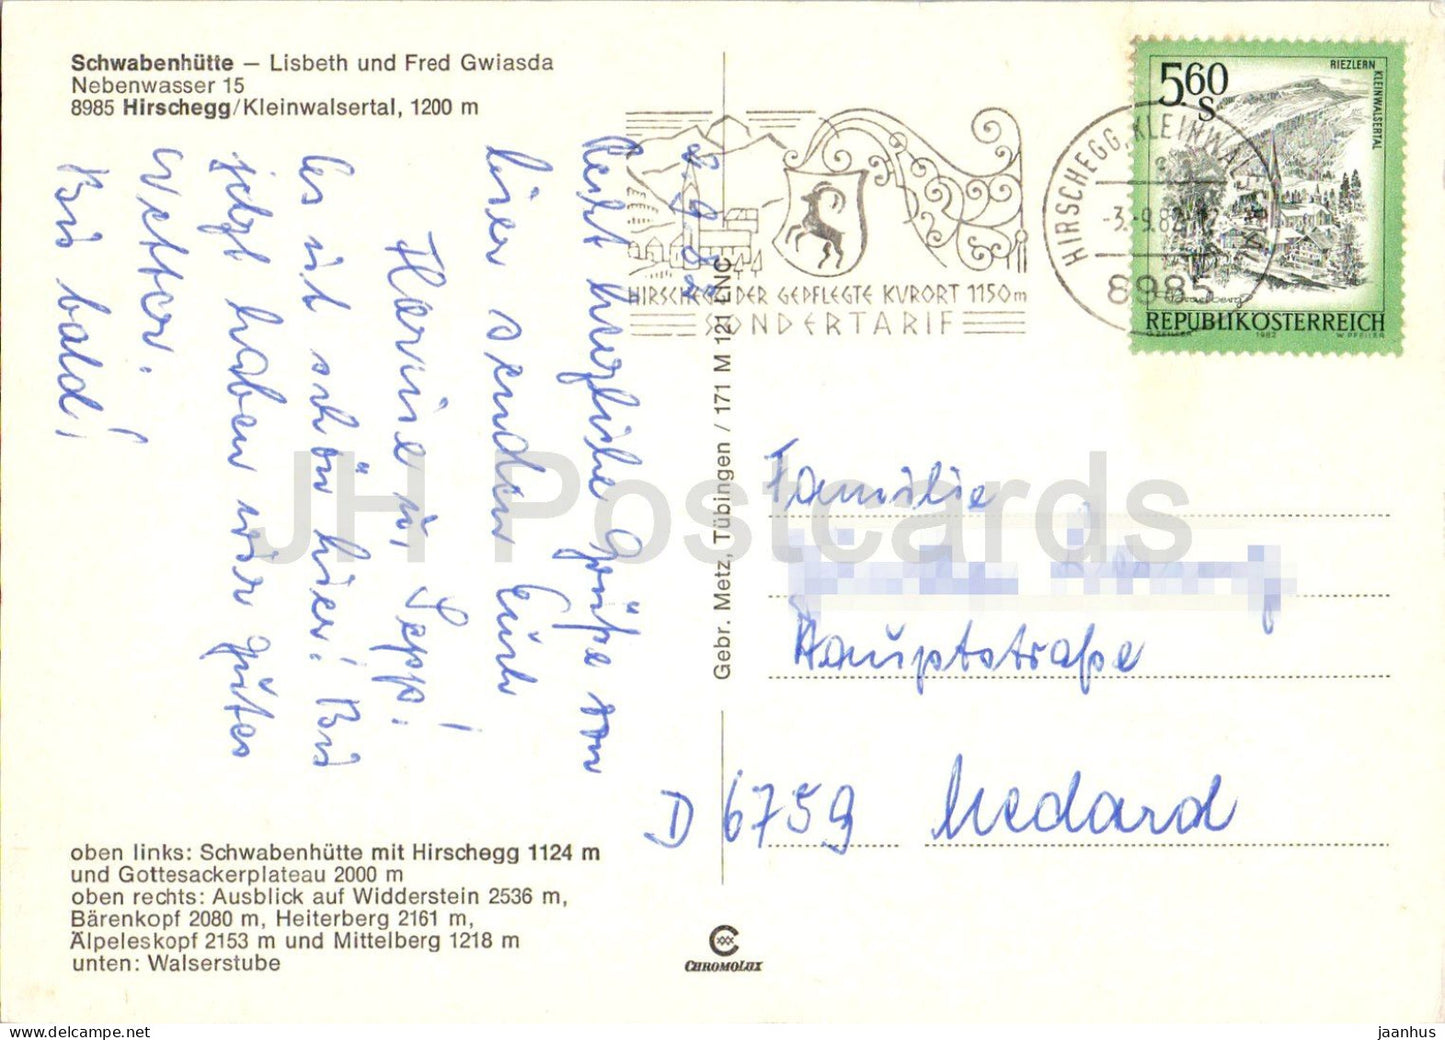 Schwabenhütte – Lisbeth und Fred Gwiasda
Nebenwasser 15
8985 Hirschegg/Kleinwalsertal, 1200 m
Recht herzliche Grüße von
hier senden Euch
Hermine u. Sepp!
Es ist schön hier! Bis
jetzt haben wir gutes
Wetter.
Bis bald!
oben links: Schwabenhütte mit Hirschegg 1124 m
und Gottesackerplateau 2000 m
oben rechts: Ausblick auf Widderstein 2536 m,
Bärenkopf 2080 m, Heiterberg 2161 m,
Älpeleskopf 2153 m und Mittelberg 1218 m
unten: Walserstube
Gebr. Metz, Tübingen / 171 M 121 LNC
CHROMOLUX
HIRSCHEGG DER GEPFLEGTE KURORT 1150m
SONDERTARIF
HIRSCHEGG, KLEINWALSERTAL
-3.-9.82-12
8985
5.60
S
RIEZLERN
KLEINWALSERTAL
Vorarlberg
REPUBLIK ÖSTERREICH
O. ZEILLER 1982 W. PFEILER
Familie
Hauptstraße
D 6759 Medard
JH Postcards
jaanhus